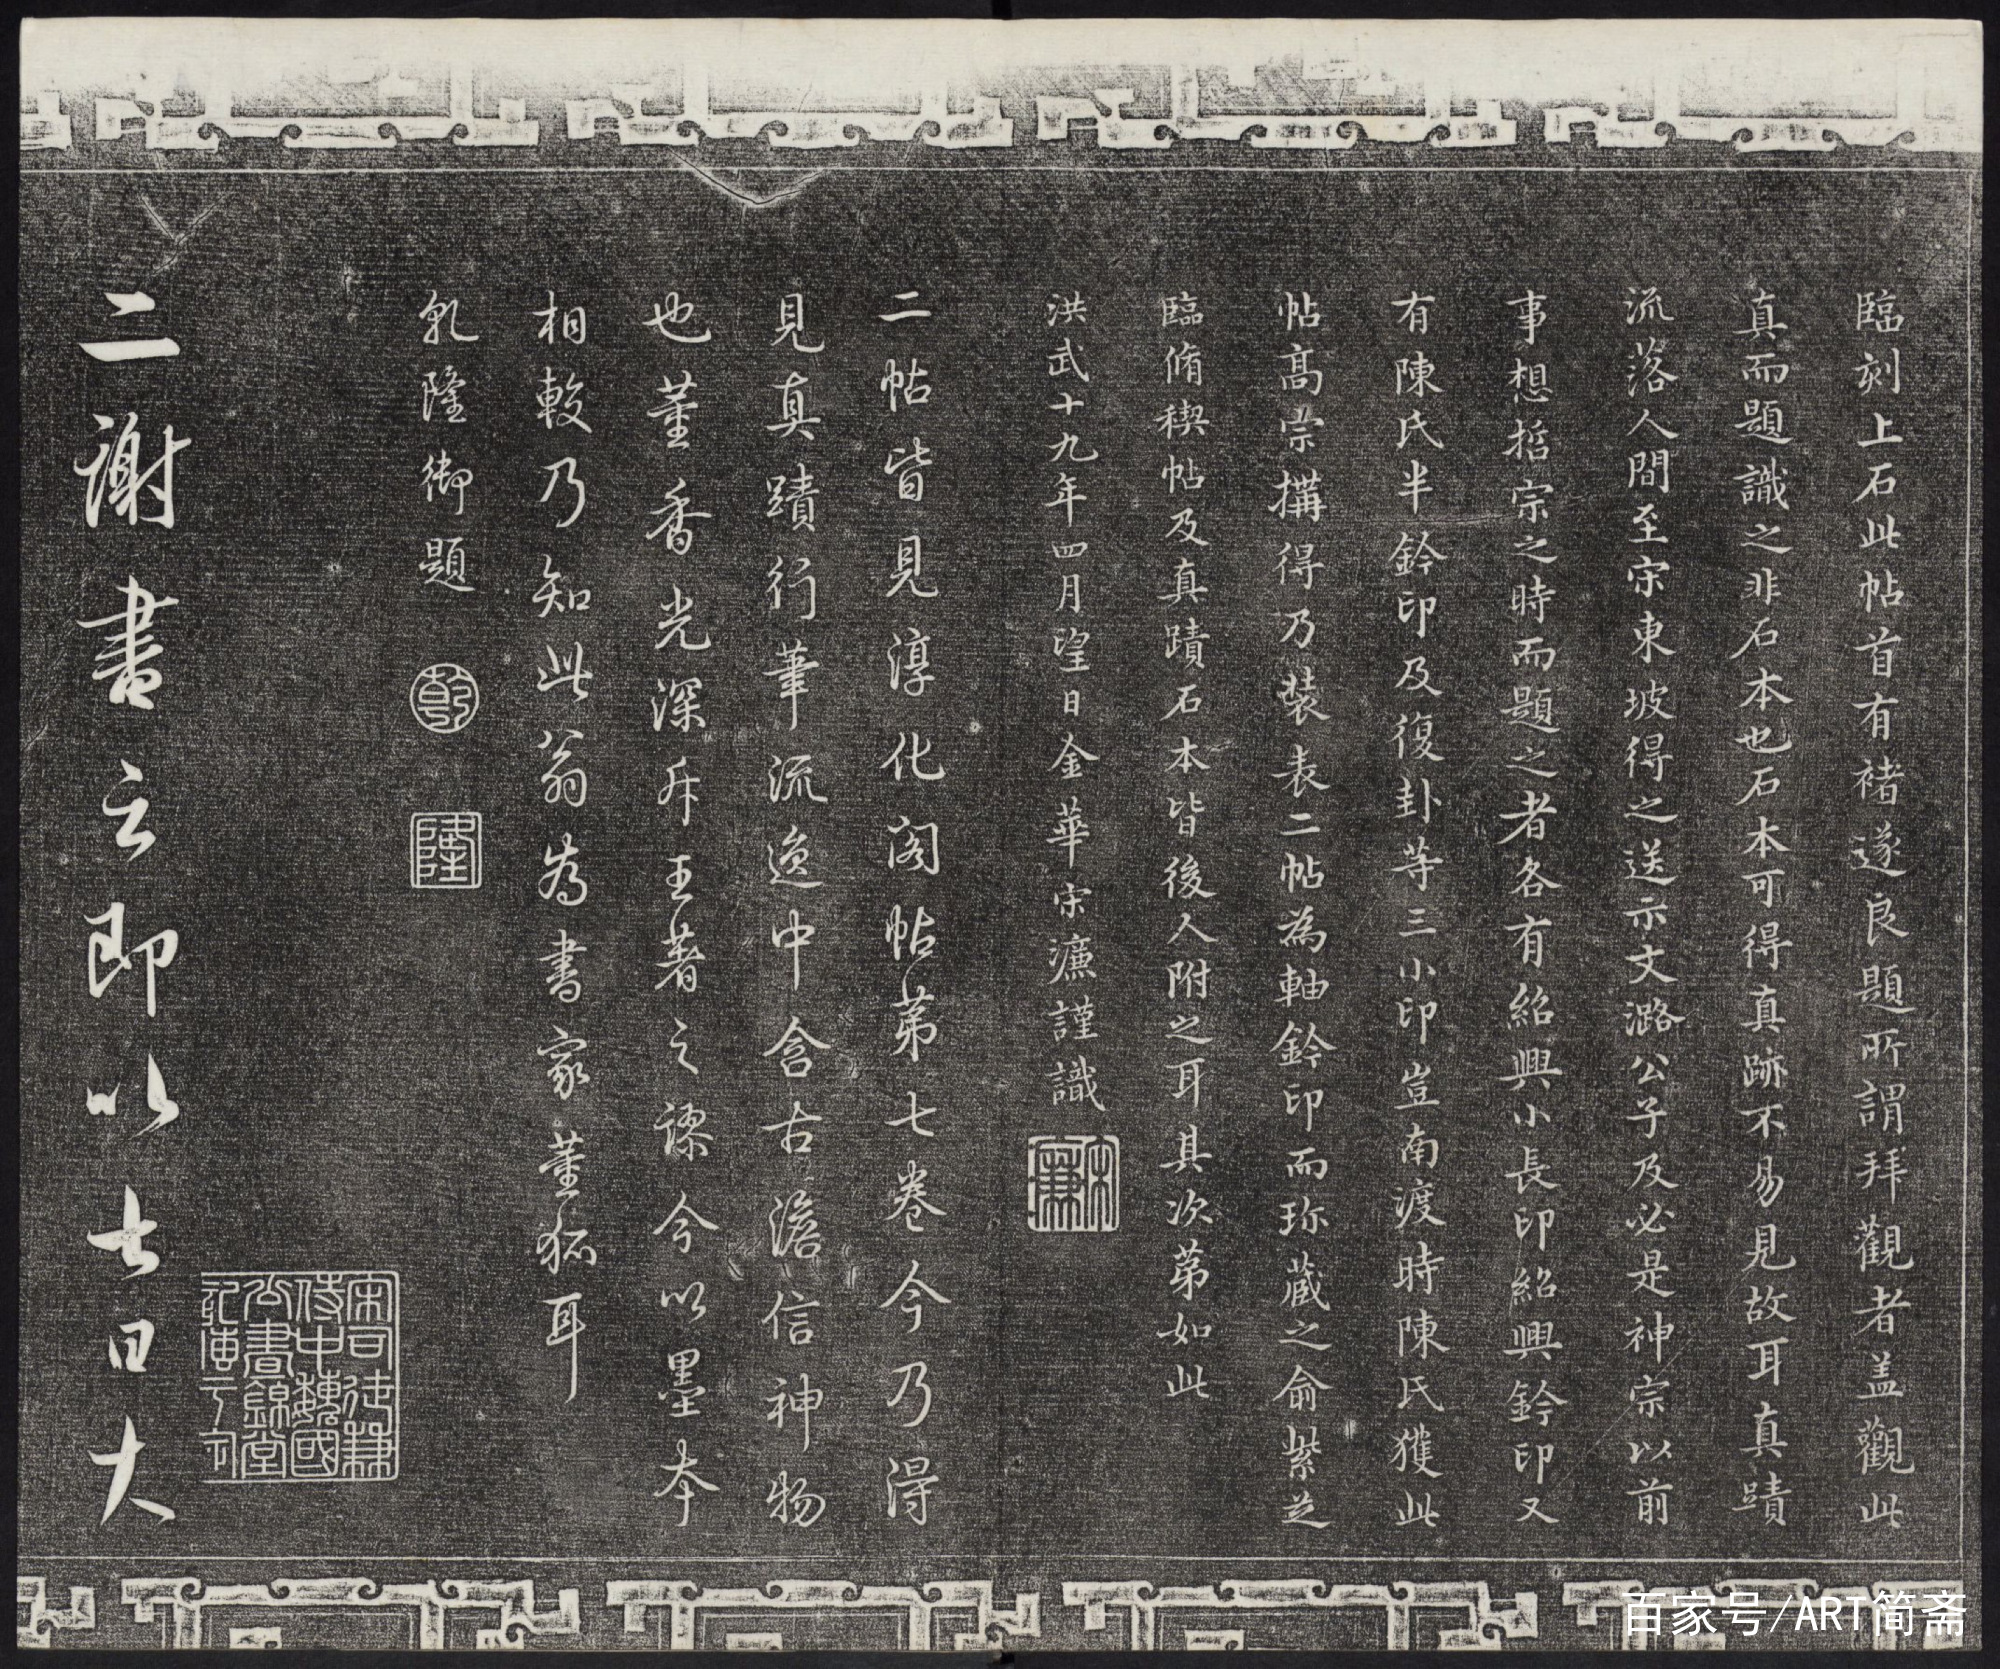 臨刻上石此帖首有褚遂良題所謂拜觀者盖觀此
真而題識之非石本也石本可得真跡不易見故耳真蹟
流落人間至宋東坡得之送示文潞公子及必是神宗以前
事想哲宗之時而題之者各有紹興小長印紹興鈐印又
有陳氏半鈐印及復卦等三小印豈南渡時陳氏獲此
帖高宗搆得乃裝表二帖為軸鈐印而珎藏之俞紫芝
臨脩稧帖及真蹟石本皆後人附之耳其次第如此
洪武十九年四月望日金華宋濂謹識
宋濂
二帖皆見淳化閣帖第七卷今乃得
見真蹟行筆流逸中含古澹信神物
也董香光深斥王著之謬今以墨本
相較乃知此翁為書家董狐耳
乾隆御題
乾
隆
宋司徒兼
侍中魏國
公晝錦堂
二謝書云即以七日大
百家号/ART简斋